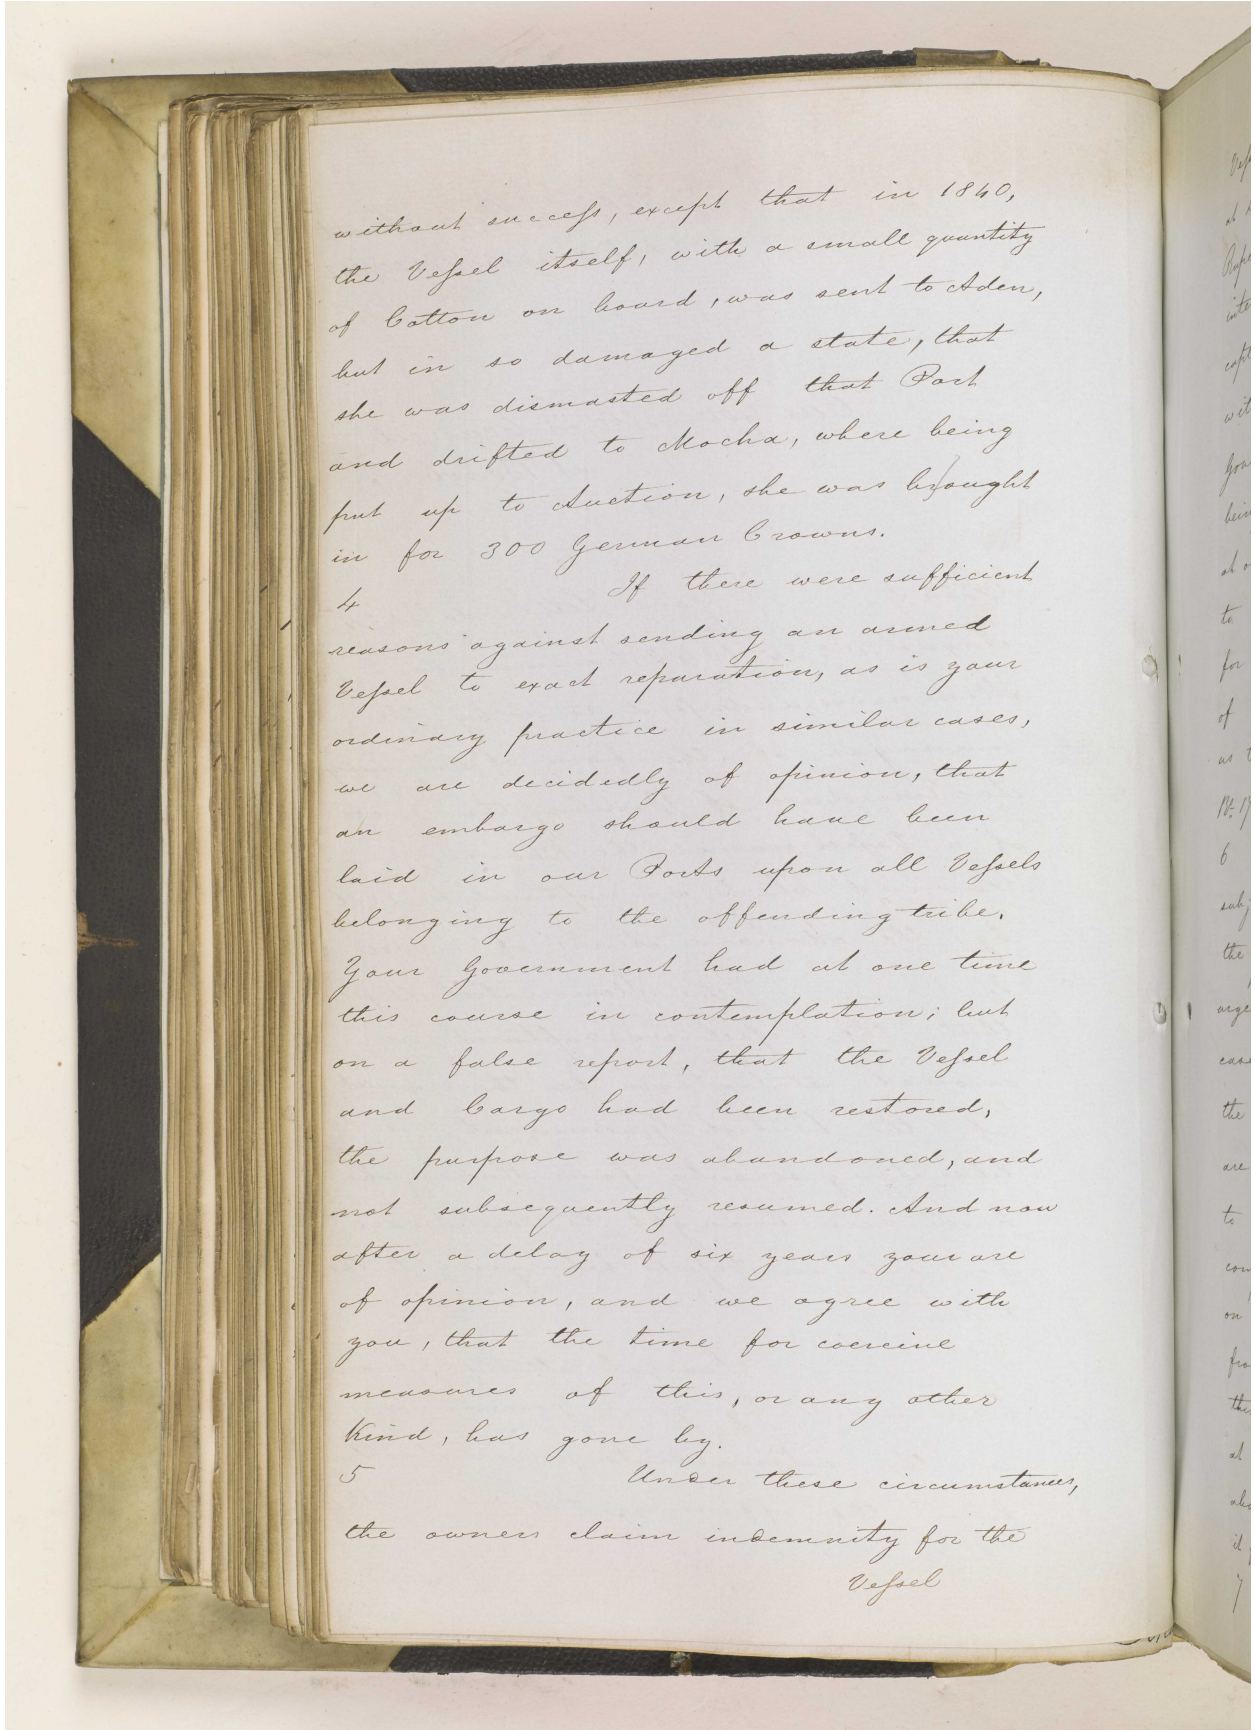 without success, except that in 1840,
the Vessel itself, with a small quantity
of Cotton on board, was sent to Aden,
but in so damaged a state, that
she was dismasted off that Port
and drifted to Mocha, where being
put up to Auction, she was brought
in for 300 German Crowns.
4 If there were sufficient
reasons against sending an armed
Vessel to exact reparation, as is your
ordinary practice in similar cases,
we are decidedly of opinion, that
an embargo should have been
laid in our Ports upon all Vessels
belonging to the offending tribe.
Your Government had at one time
this course in contemplation; but
on a false report, that the Vessel
and Cargo had been restored,
the purpose was abandoned, and
not subsequently resumed. And now
after a delay of six years your are
of opinion, and we agree with
you, that the time for coercive
measures of this, or any other
Kind, has gone by.
5 Under these circumstances,
the owners claim indemnity for the
Vessel